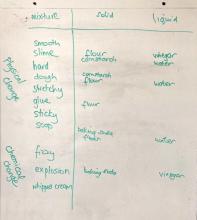 mixture solid liquid
smooth
slime flour vinegar
hard cornstarch water
dough cornstarch
stretchy flour water
glue flour
sticky
soap
baking soda
flour water
fizzy
explosion baking soda vinegar
whipped cream
physical change
chemical change